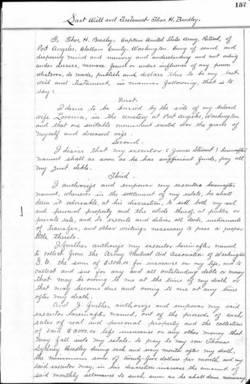 157
Last Will and Testament - Thor H. Bradley.
I, Thor H. Bradley, Captain United States Army, Retired, of
Port Angeles, Clallam County, Washington, being of sound and
disposing mind and memory and understanding and not acting
under duress, menace, fraud or undue influence of any person
whatever, do make, publish and declare this to be my last
will and testament, in manner following, that is to
say:
First.
I desire to be buried by the side of my beloved
wife in the cemetery at Port Angeles, Washington
and that one suitable monument for the graves of
myself and deceased wife.
Second.
I desire that my executor hereinafter
named shall as soon as he has sufficient funds, pay all
my just debts.
Third.
I authorize and empower my executor hereinafter
named, in the settlement of my estate, as shall
deem it advisable, at his discretion, to sell, both my real
and personal property and the whole thereof, at public or
private sale, and to execute and deliver all deeds, instruments
of transfer, and other writings necessary to pass a proper
title thereto.
I further authorize my executor hereinafter named
to collect from the Army Mutual Aid Association of Washington
D.C. the sum of on my life, and to
collect and sue for any and all outstanding debts or money
that may be owing to me at the time of my death or
that may become due and owing to me at any time
after my death.
And I further authorize and empower my said
executor hereinafter named, out of the proceeds of such
sales of real and personal property and the collection
of said life insurance or any other money that
may fall into my estate, to pay to my son Thomas
during each and every month after my death,
the sum of dollars per month, and my
said executor may, in his discretion increase the amount of
said monthly as he shall deem